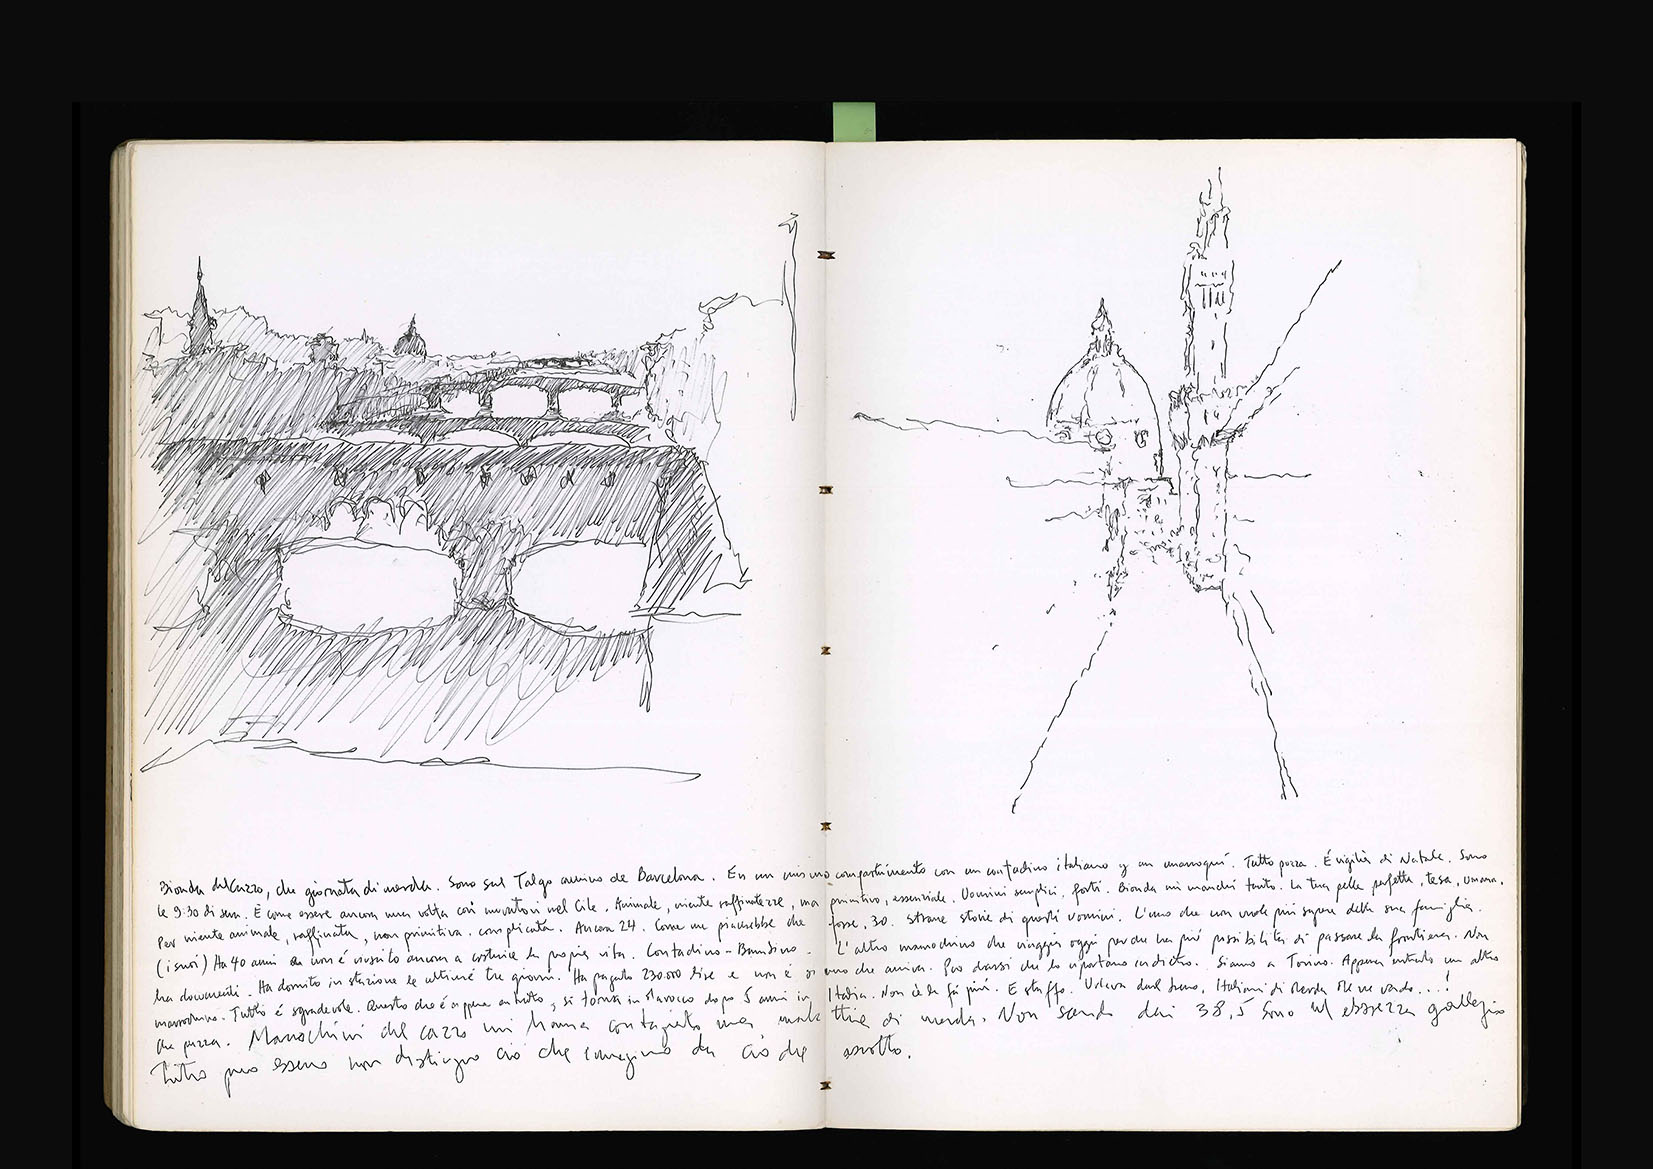 Bionda del Cazzo, che giornata di merda. Sono sul Talgo camino de Barcelona. En un mismo compartimento con un contadino italiano y un marroquí. Tutto puzza. É vigilia di Natale. Sono
le 9:30 di sera. È come essere ancora una volta coi muratori nel Cile. Animale, niente raffinatezze, ma primitivo, essenziale. Uomini semplici, forti. Bionda mi manchi tanto. La tua pelle perfetta, tesa, umana.
Per niente animale, raffinata, non primitiva. complicata. Ancora 24. Come me piacerebbe che forse, 30. Strane storie di questi uomini. L'uno che non vuole più sapere della sua famiglia
(i suoi) Ha 40 anni e non é riuscito ancora a costruire la propria vita. Contadino - Bambino. L'altro marrochino che viaggia oggi perche ha più possibilità di passare la frontiera. Non
ha documenti. Ha dormito in stazione le ultime tre giorni. Ha pagato 230.000 lire e non è uno che arriva. Puo darsi che lo riportano indietro. Siamo a Torino. Appena entrato un altro
marrochino. Tutto é sgradevole. Questo che é appena entrato, si torna in Marocco dopo 5 anni in Italia. Non ce la fa più. E stuffo. Urlava dal treno, Italiani di Merda Me ne vado...!
che puzza. Marochini del cazzo mi hanno contagiato una malattia di merda. Non scendo dai 38,5 Sono
Tutto puo essere non distinguo ciò che immagino da ciò che ascolto.